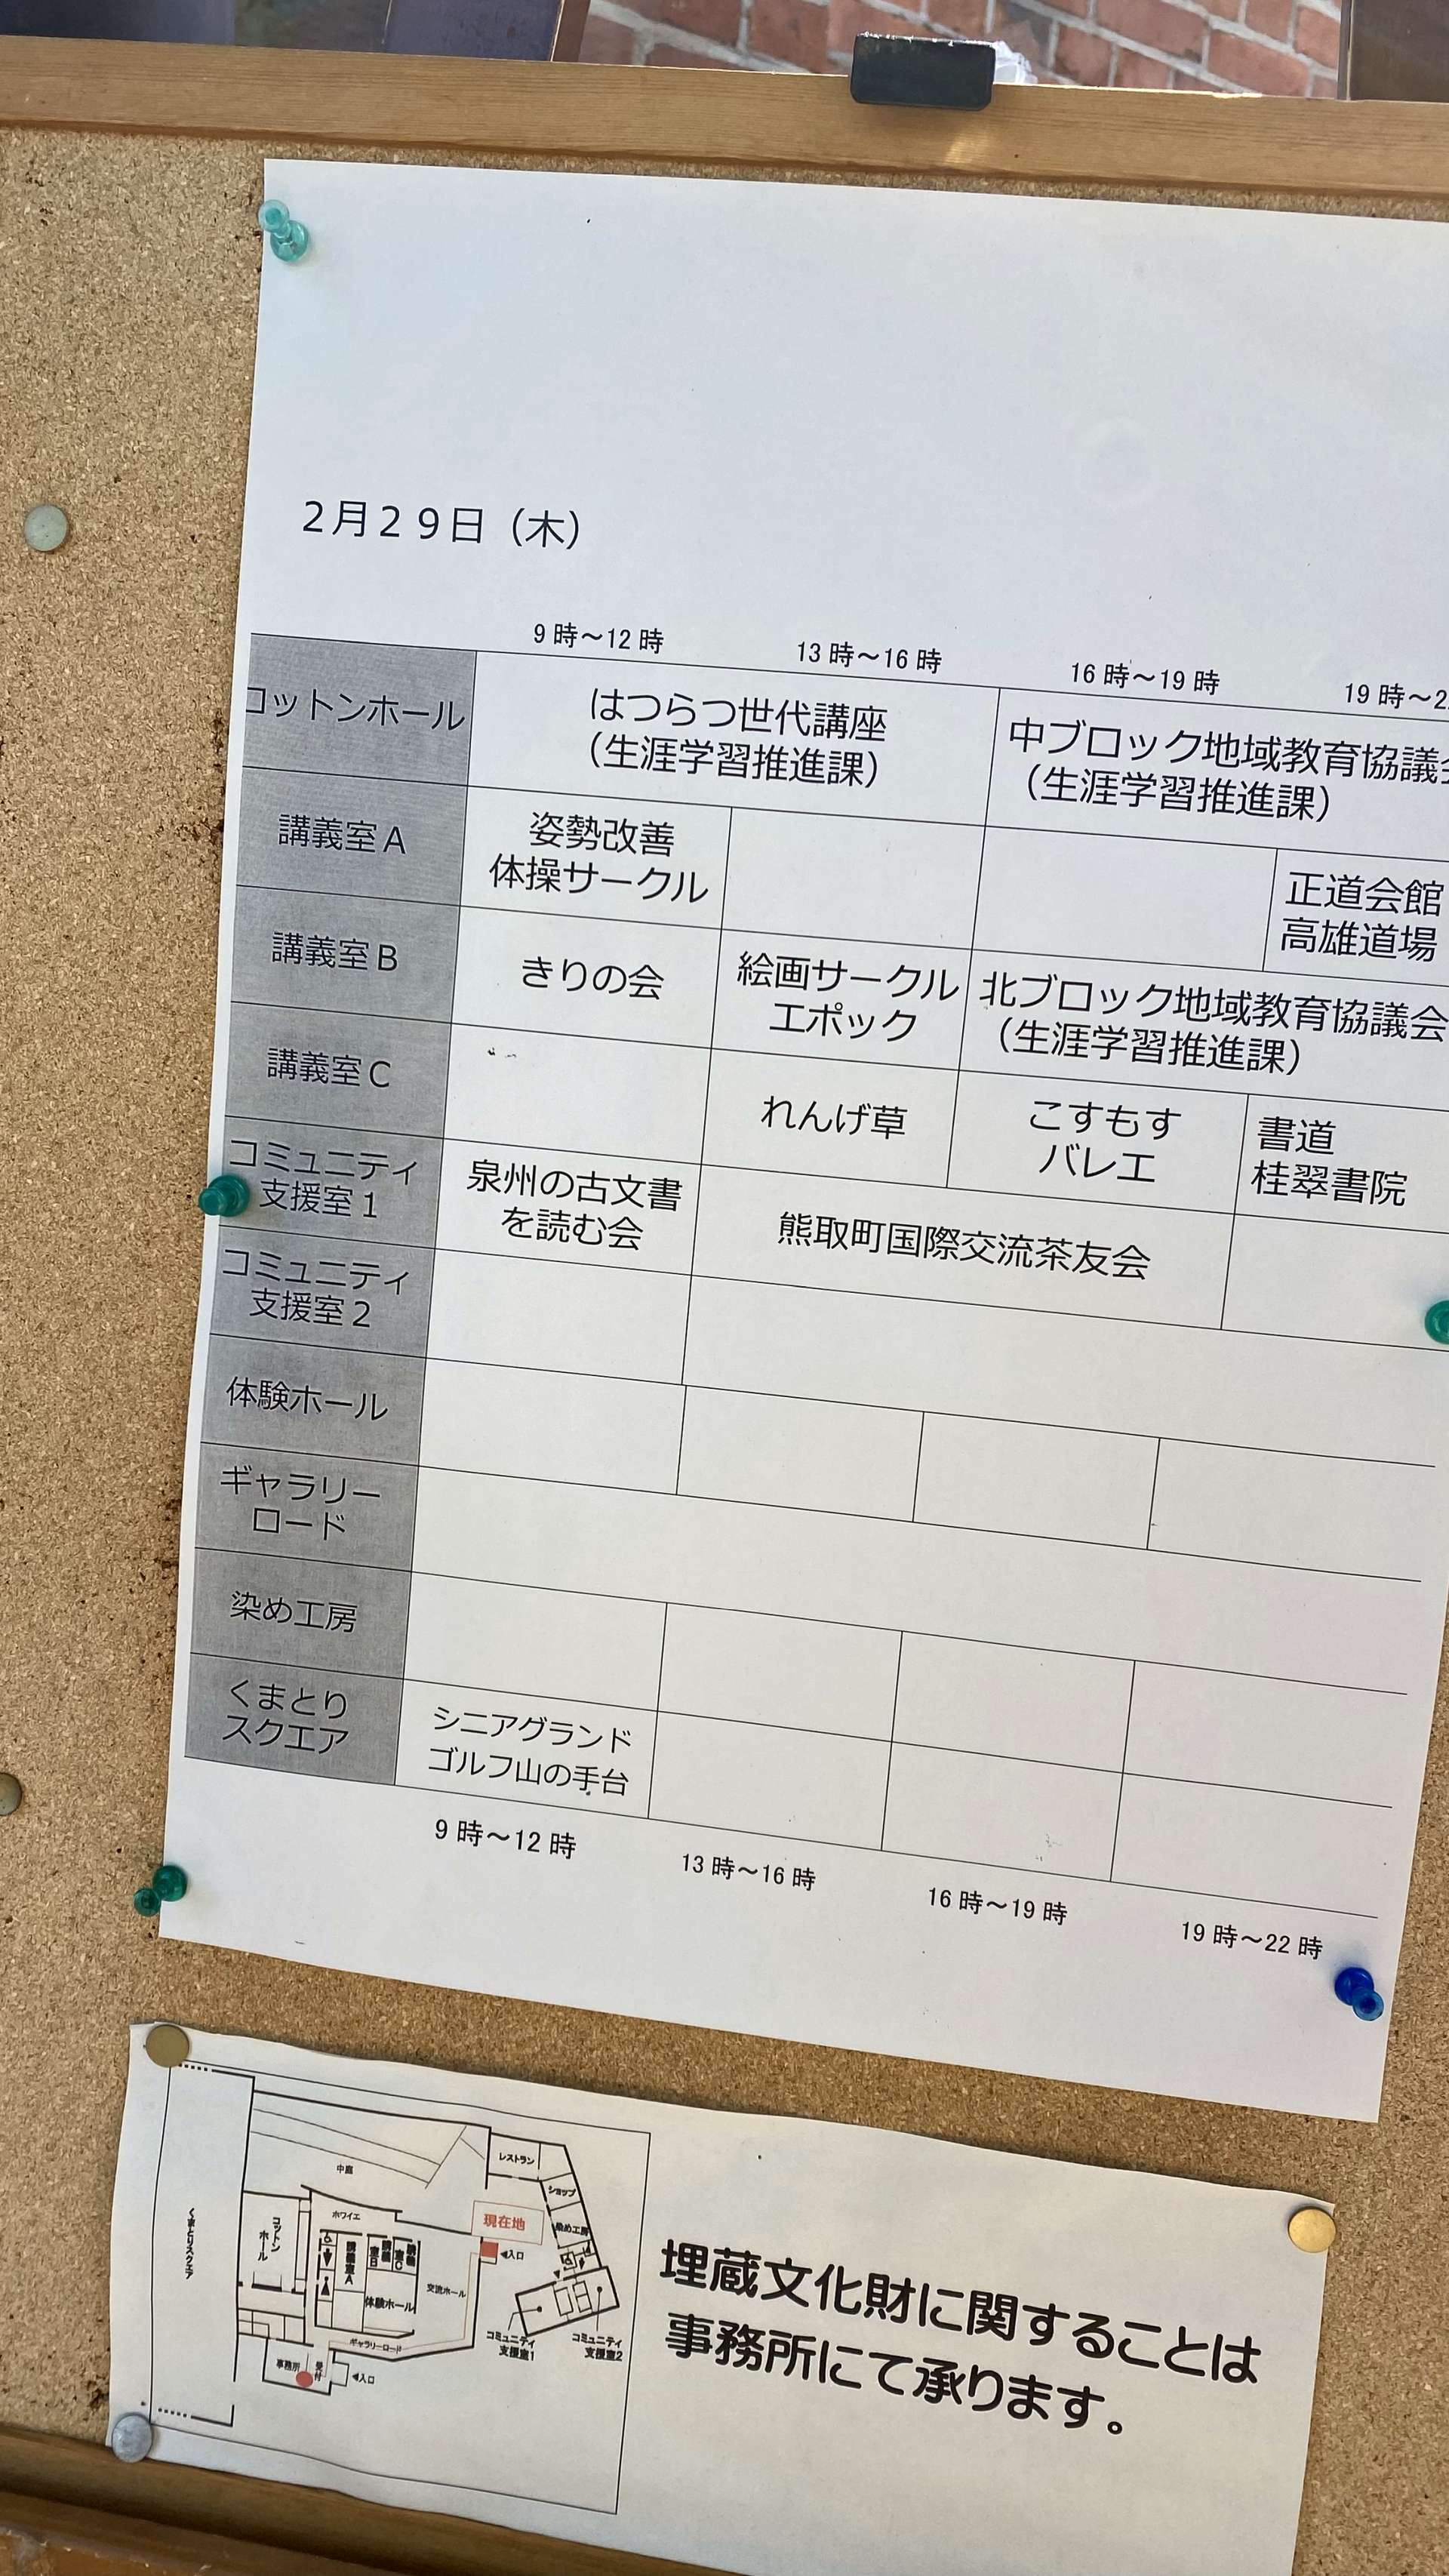 2月29日（木）
9時～12時
13時～16時
16時～19時
19時～2
コットンホール
はつらつ世代講座
（生涯学習推進課）
中ブロック地域教育協議会
（生涯学習推進課）
講義室A
姿勢改善
体操サークル
正道会館
高雄道場
講義室B
きりの会
絵画サークル
エポック
北ブロック地域教育協議会
（生涯学習推進課）
講義室C
れんげ草
こすもす
バレエ
書道
桂翠書院
コミュニティ
支援室1
泉州の古文書
を読む会
熊取町国際交流茶友会
コミュニティ
支援室2
体験ホール
ギャラリー
ロード
染め工房
くまとり
スクエア
シニアグランド
ゴルフ山の手台
9時～12時
13時～16時
16時～19時
19時～22時
くまとりスクエア
中庭
レストラン
ショップ
染め工房
現在地
◀入口
ホワイエ
コットン
ホール
講義室A
講義室B
講義室C
体験ホール
交流ホール
ギャラリーロード
コミュニティ
支援室1
コミュニティ
支援室2
事務所
受付
◀入口
埋蔵文化財に関することは
事務所にて承ります。